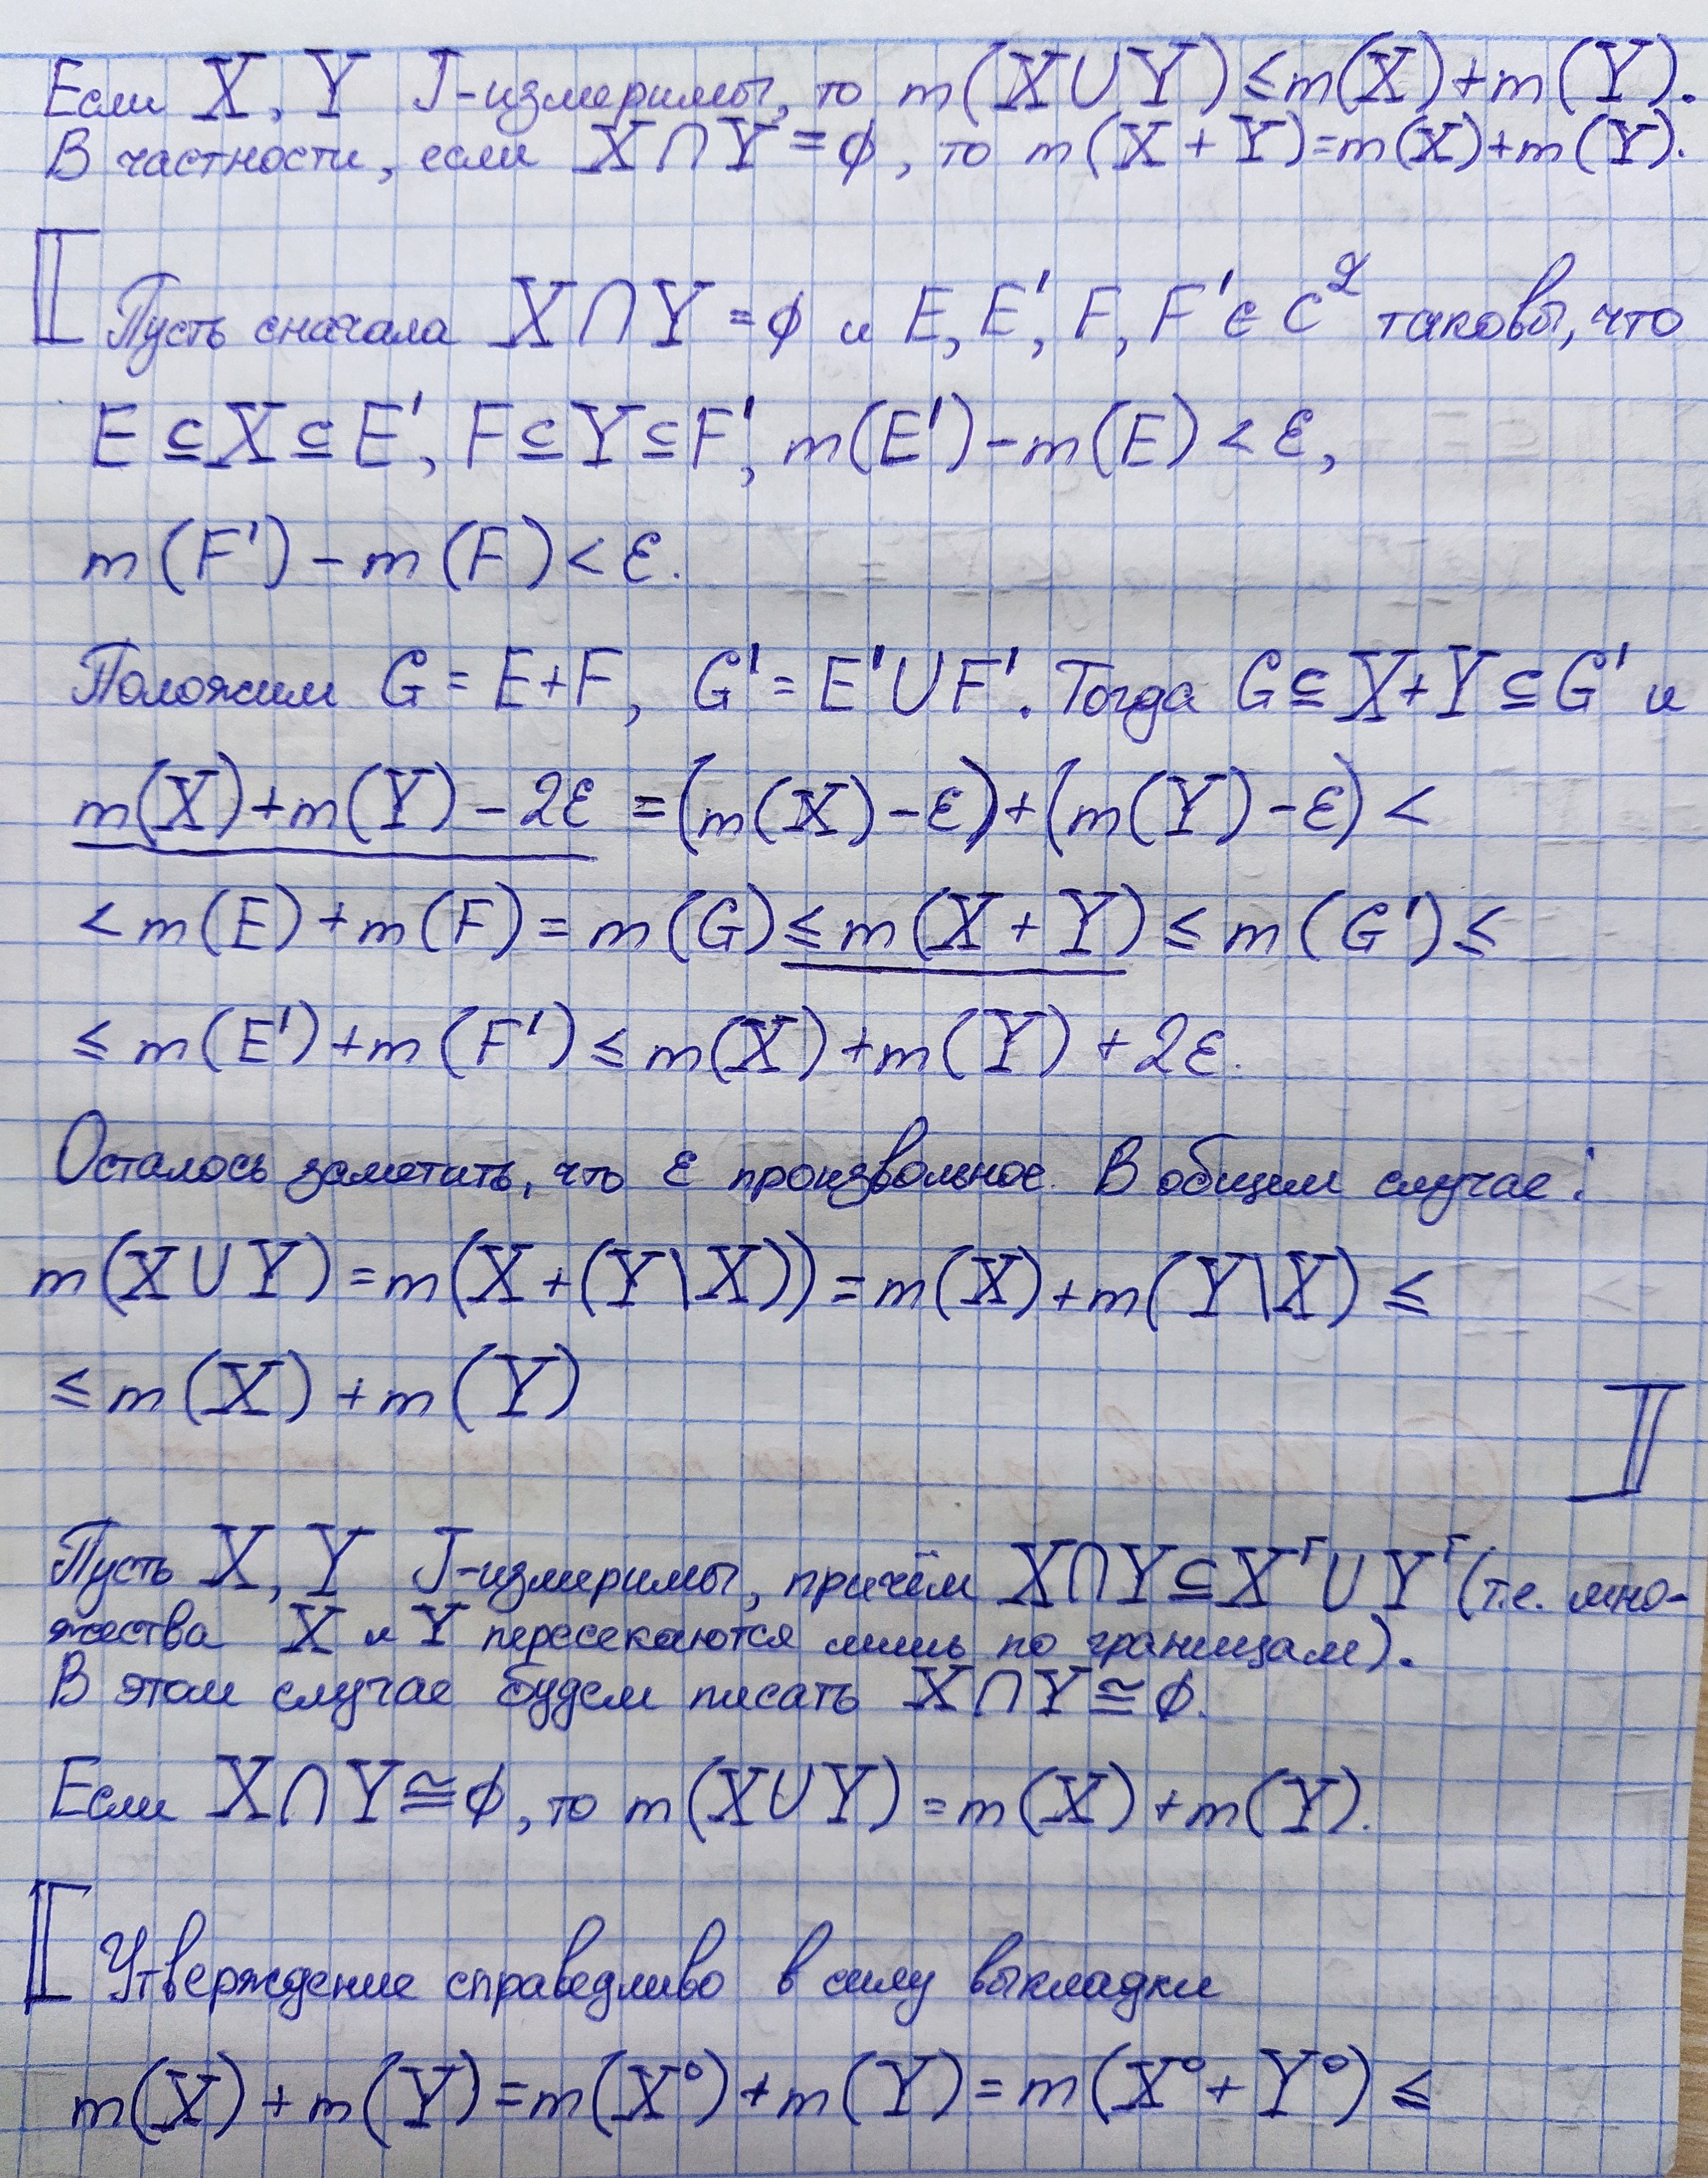 Если X, Y J-измеримы, то m(X∪Y)≤m(X)+m(Y).
В частности, если X∩Y=∅, то m(X+Y)=m(X)+m(Y).
⟦ Пусть сначала X∩Y=∅ и E, E', F, F'∈C² таковы, что
E⊆X⊆E', F⊆Y⊆F', m(E')-m(E)<ε,
m(F')-m(F)<ε.
Положим G=E+F, G'=E'∪F'. Тогда G⊆X+Y⊆G' и
m(X)+m(Y)-2ε=(m(X)-ε)+(m(Y)-ε)<
<m(E)+m(F)=m(G)≤m(X+Y)≤m(G')≤
≤m(E')+m(F')≤m(X)+m(Y)+2ε.
Осталось заметить, что ε произвольное. В общем случае:
m(X∪Y)=m(X+(Y\X))=m(X)+m(Y\X)≤
≤m(X)+m(Y)
⟧
Пусть X, Y J-измеримы, причём X∩Y⊆Xʳ∪Yʳ (т.е. мно-
жества X и Y пересекаются лишь по границам).
В этом случае будем писать X∩Y≅∅.
Если X∩Y≅∅, то m(X∪Y)=m(X)+m(Y).
⟦ Утверждение справедливо в силу выкладки
m(X)+m(Y)=m(X°)+m(Y)=m(X°+Y°)≤